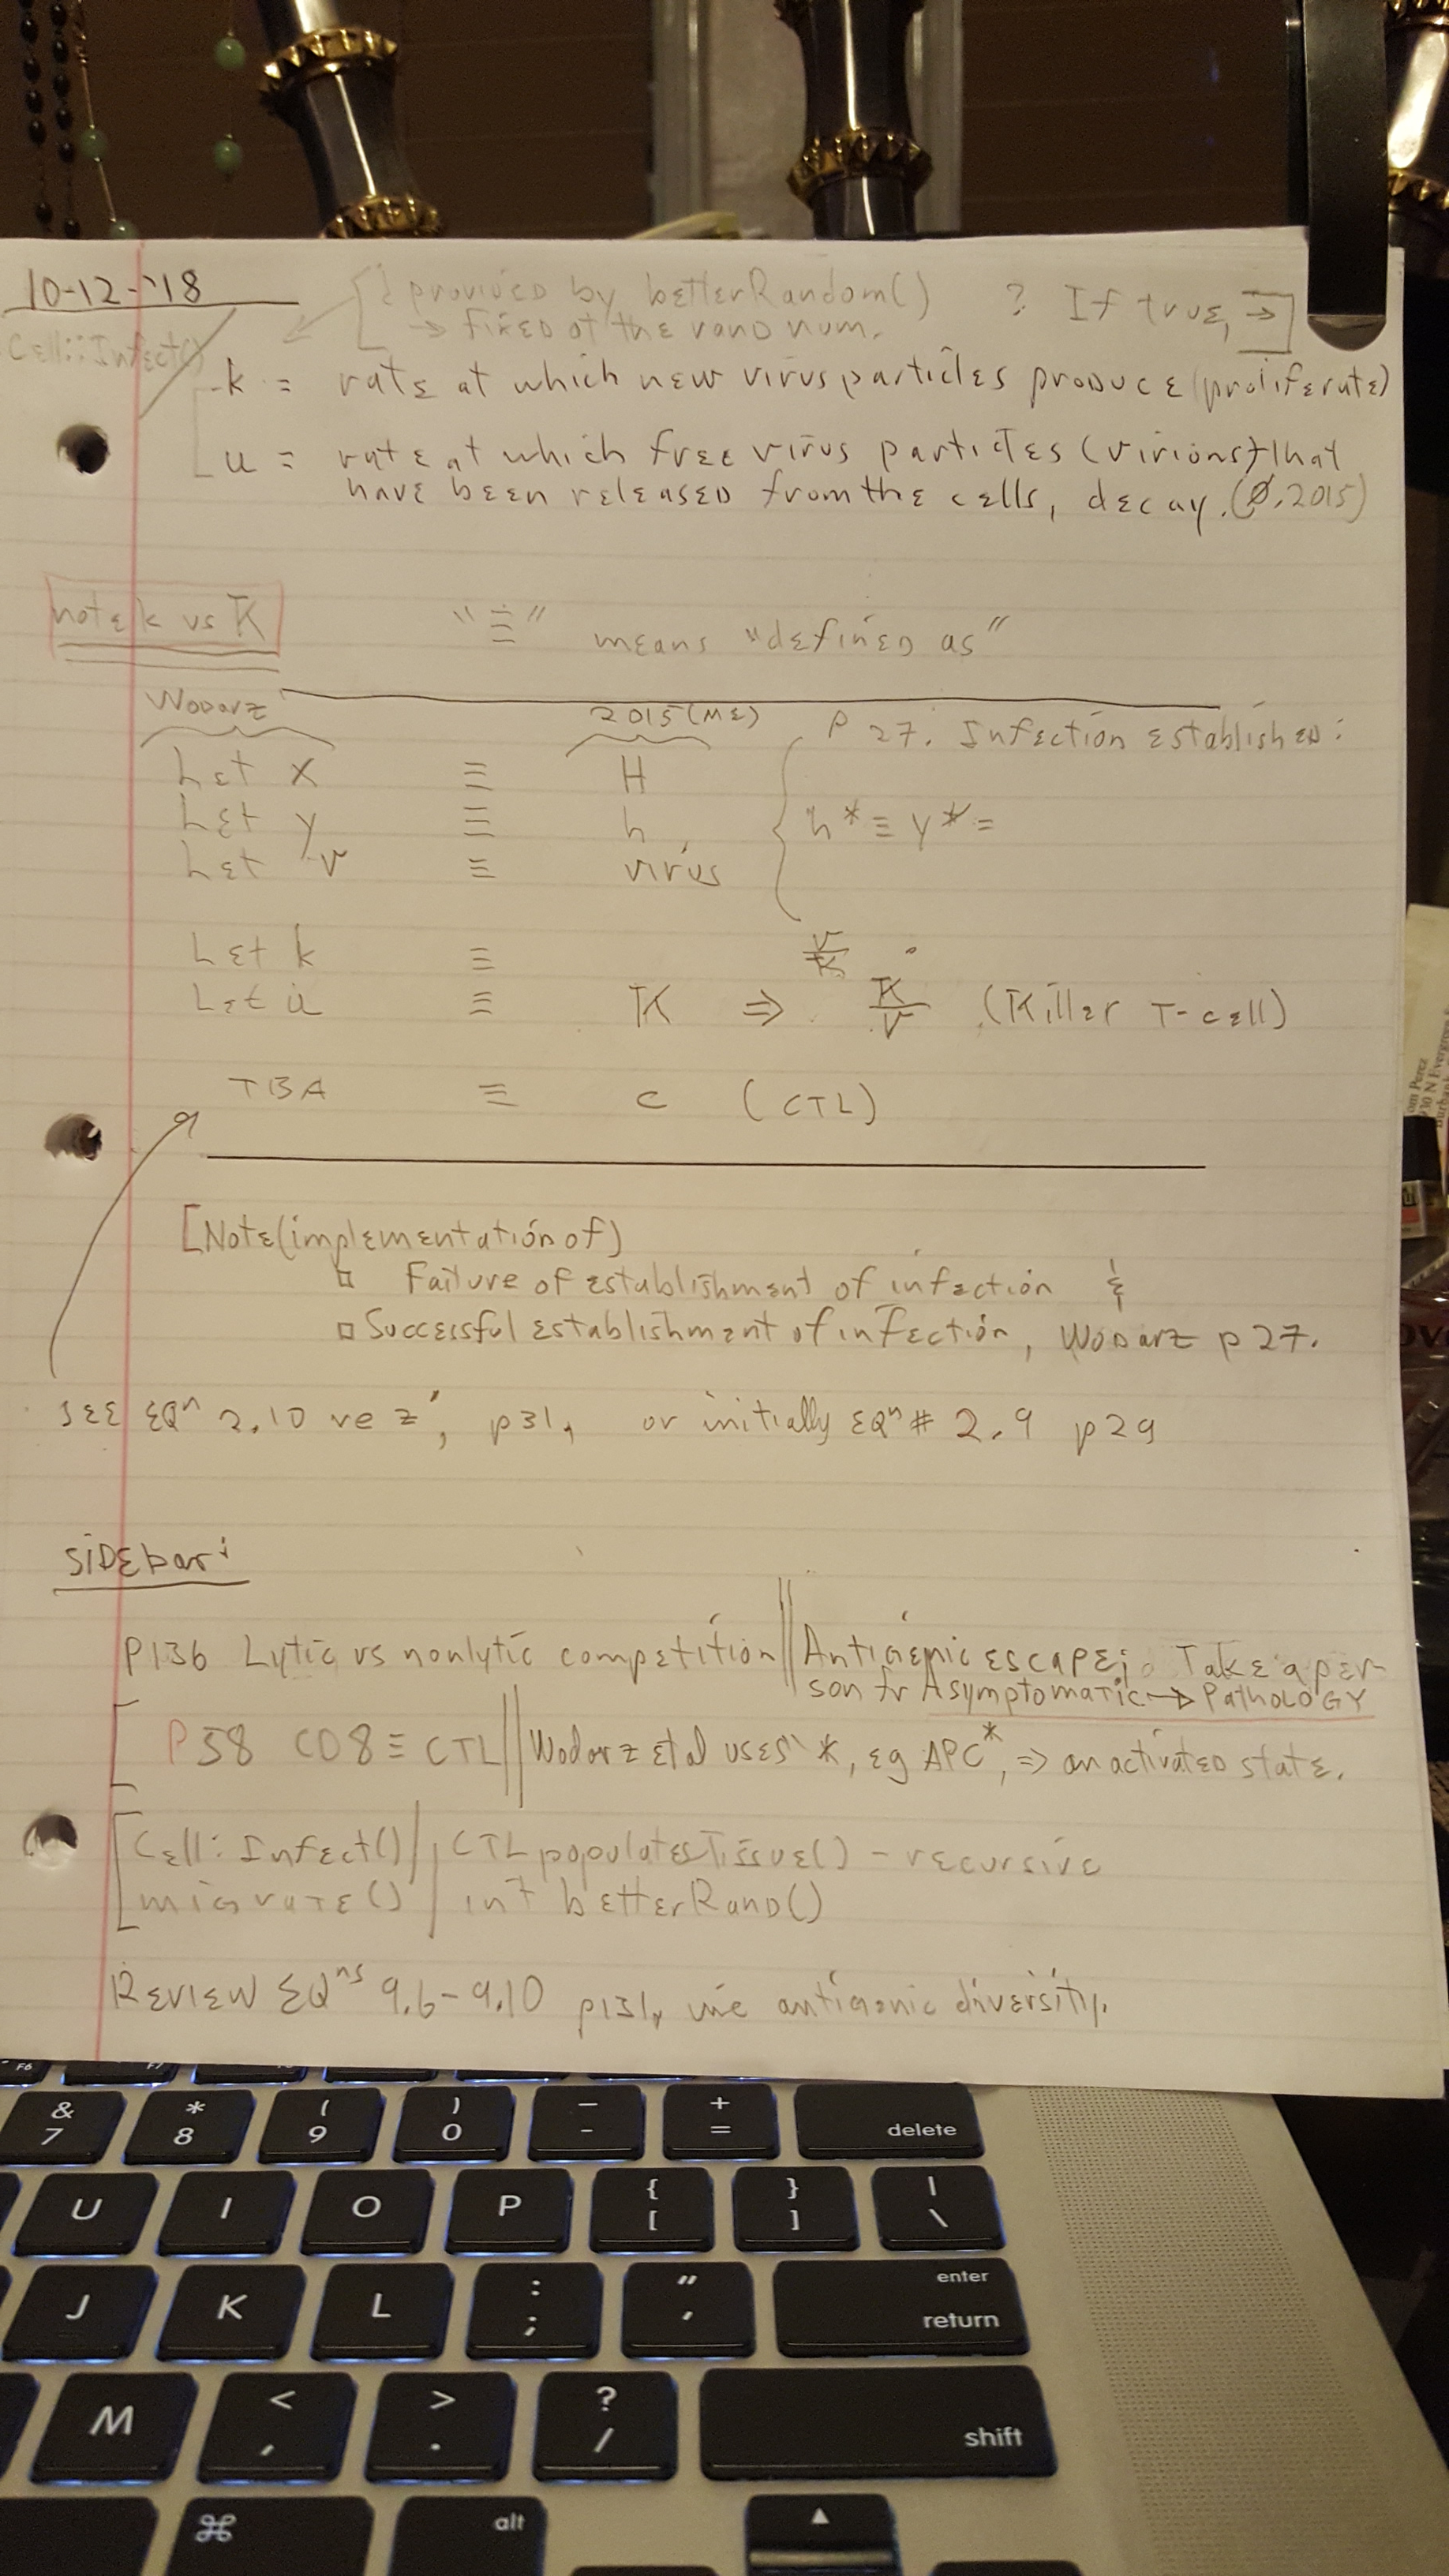 10-12-'18
provided by betterRandom() ? If true, →
→ fixed at the rand num.
Cell::Infect()
k = rate at which new virus particles produce (proliferate)
u = rate at which free virus particles (virions) that
have been released from the cells, decay. (Ø, 2015)
note k vs K
"≡" means "defined as"
Wodarz 2015 (ME) P 27. Infection established:
Let x ≡ H
Let y ≡ h h* ≡ y* =
Let v ≡ virus
Let k ≡
Let u ≡ K ⇒ K/V (Killer T-cell)
TBA ≡ c (CTL)
[Note (implementation of)
□ Failure of establishment of infection &
□ Successful establishment of infection, Wodarz p 27.
SEE EQⁿ 2.10 re z', p31, or initially EQⁿ # 2.9 p29
Sidebar:
P136 Lytic vs nonlytic competition || Antigenic escape; Take a per-
son fr Asymptomatic → Pathology
P58 CD8 ≡ CTL || Wodarz et al uses *, eg APC*, ⇒ an activated state.
Cell::Infect() / CTLpopulatesTissue() - recursive
migrate() / int betterRand()
Review EQⁿˢ 9.6-9.10 p131, antigenic diversity.
om Perez
930 N Evergre
Burba
F6
F7
& 7
* 8
( 9
) 0
_ -
+ =
delete
U
I
O
P
{ [
} ]
| \
J
K
L
: ;
" '
enter
return
M
< ,
> .
? /
shift
⌘
alt
▲